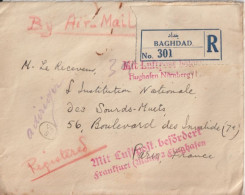 By Air-Mail
BAGHDAD
R
No. 301
Mit Luftpost
Flughafen Nürnberg
M. Le Receveur
L'Institution Nationale
des Sourds-Muets
56, Boulevard des Invalides (7e)
Registered
Mit Luftpost befördert
Frankfurt Flughafen
Paris France